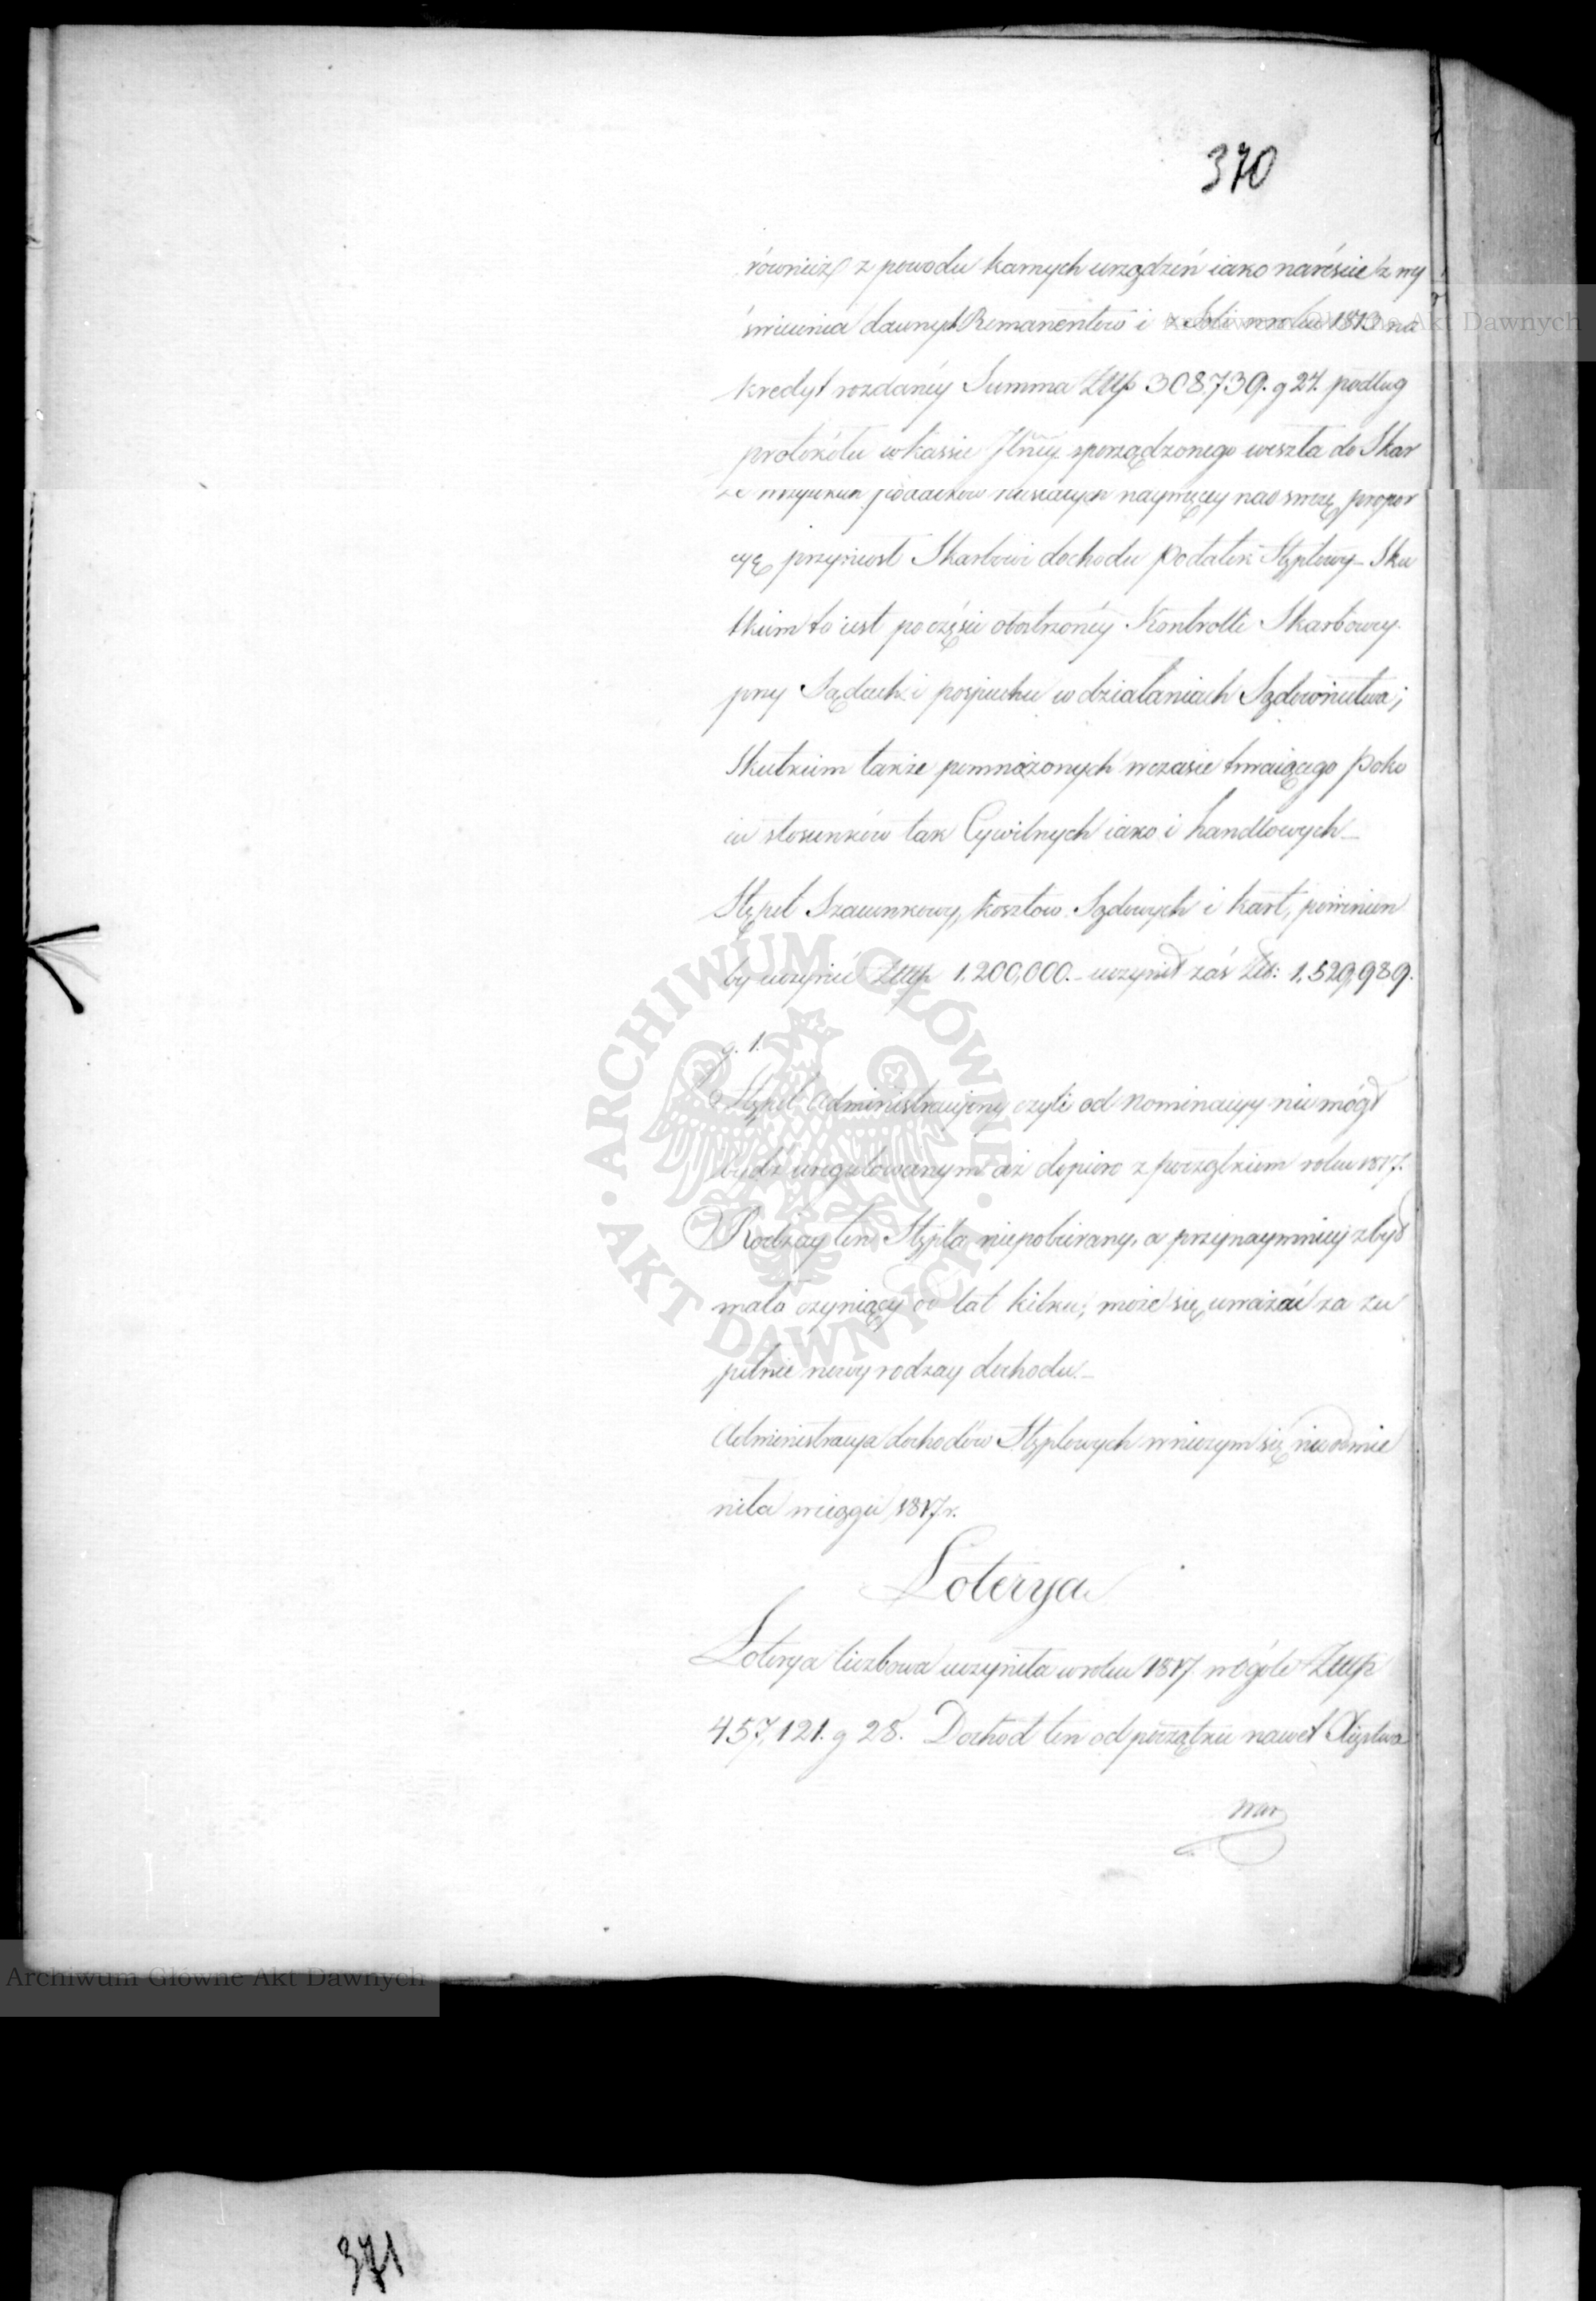 370
równiéż z powodu karnych urządzeń iako naréście z wy
świecenia dawnych Remanentów i z Soli w roku 1813 na
kredyt rozdanéy Summa ZłłP 308,739. g 27. podług
protokółu w kassie Jlnéy sporządzonego weszła do Skar
ze wszystkich podatków niestałych naywięcéy nad swoię propor
cyę przyniosł Skarbowi dochodu Podatek Stęplowy_ Sku
tkiem to iest po części obostrzonéy Kontrolli Skarbowéy
przy Sądach i pospiechu w działaniach Sądownictwa;
Skutkiem także pomnożonych w czasie trwaiącego Poko
iu stosunków tak Cywilnych iako i handlowych_
Stępel Szacunkowy, kosztów Sądowych i kart, powinien
by uczynić ZłłP 1,200,000._ uczynił zaś Złł: 1,529,989.
g. 1.
Stępel Administracyjny czyli od Nominacyy nie mógł
bydź uregulowanym aż dopiero z początkiem roku 1817.
Rodzay ten Stępla niepobierany, a przynaymniéy zbyt
mało czyniący od lat kilku, może się uważać za zu
pełnie nowy rodzay dochodu._
Administracya dochodów Stęplowych w niczym się nie odmie
niła w ciągu 1817 r.
Loterya
Loterya liczbowa uczyniła w roku 1817 w ogóle ZłłP
457,121. g 28. Dochod ten od początku nawet Xięstwa
War
371
Archiwum Główne Akt Dawnych
ARCHIWUM GŁÓWNE AKT DAWNYCH
Archiwum Główne Akt Dawnych